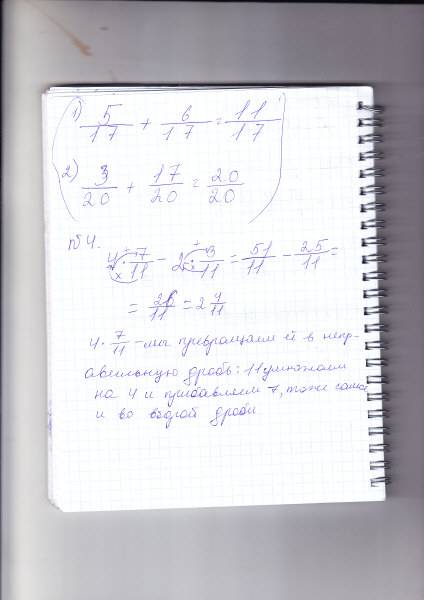 1) 5/17 + 6/17 = 11/17
2) 3/20 + 17/20 = 20/20
№4.
4 7/11 - 2 3/11 = 51/11 - 25/11 =
= 26/11 = 2 4/11
4 · 7/11 - мы превращаем её в непр-
авильную дробь: 11 умножаем
на 4 и прибавляем 7, тоже само
и во второй дроби